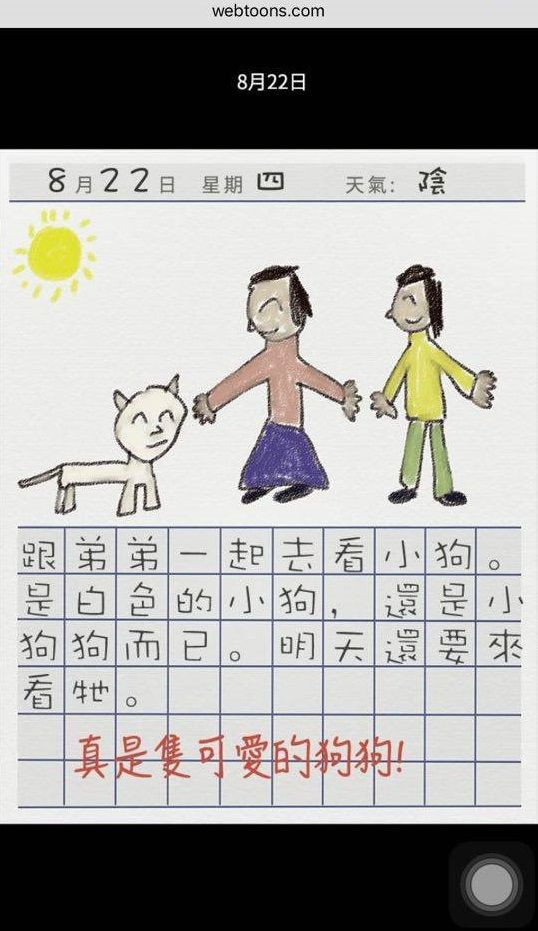 webtoons.com
8月22日
8月22日 星期四 天氣: 陰
跟弟弟一起去看小狗。
是白色的小狗，還是小
狗狗而已。明天還要來
看牠。
真是隻可愛的狗狗!